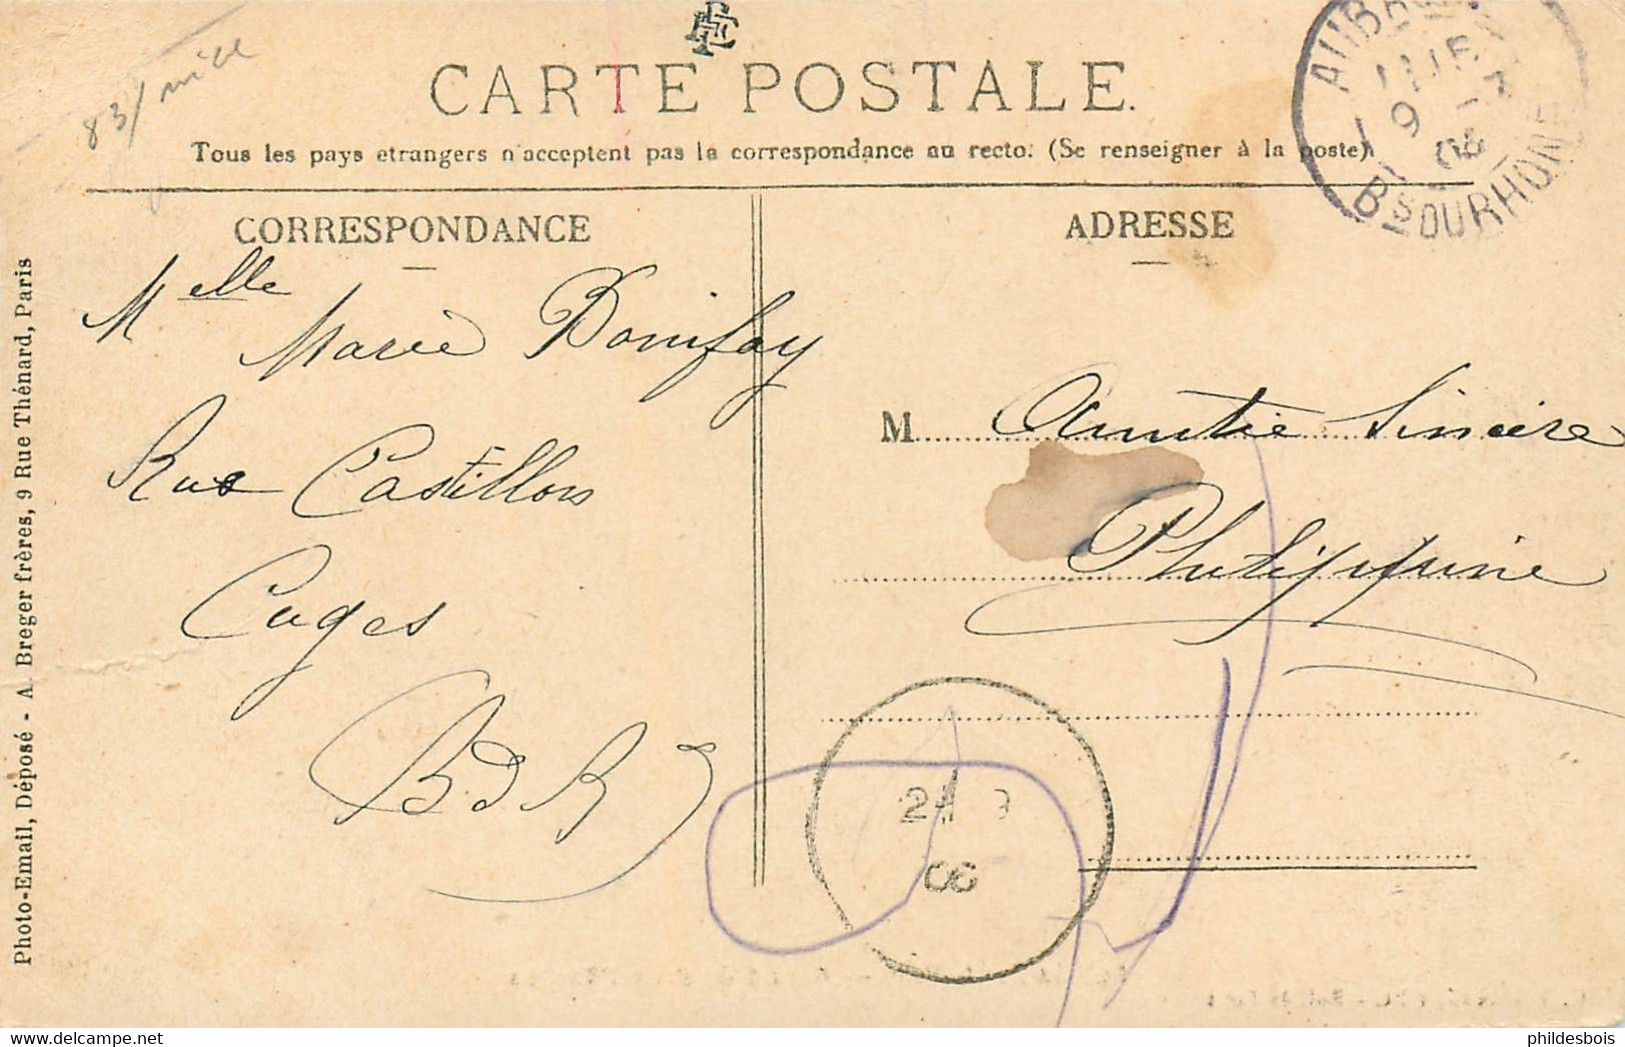 83/nice
CARTE POSTALE.
Tous les pays etrangers n'acceptent pas la correspondance au recto. (Se renseigner à la poste)
CORRESPONDANCE
Melle
Marie Bonifay
Rue Castillon
Cuges
BdR
ADRESSE
M Amitié Sincère
Philippine
9 - 7
06
Bs DU RHONE
06
Photo-Email, Déposé - A. Breger frères, 9 Rue Thénard, Paris
phildesbois